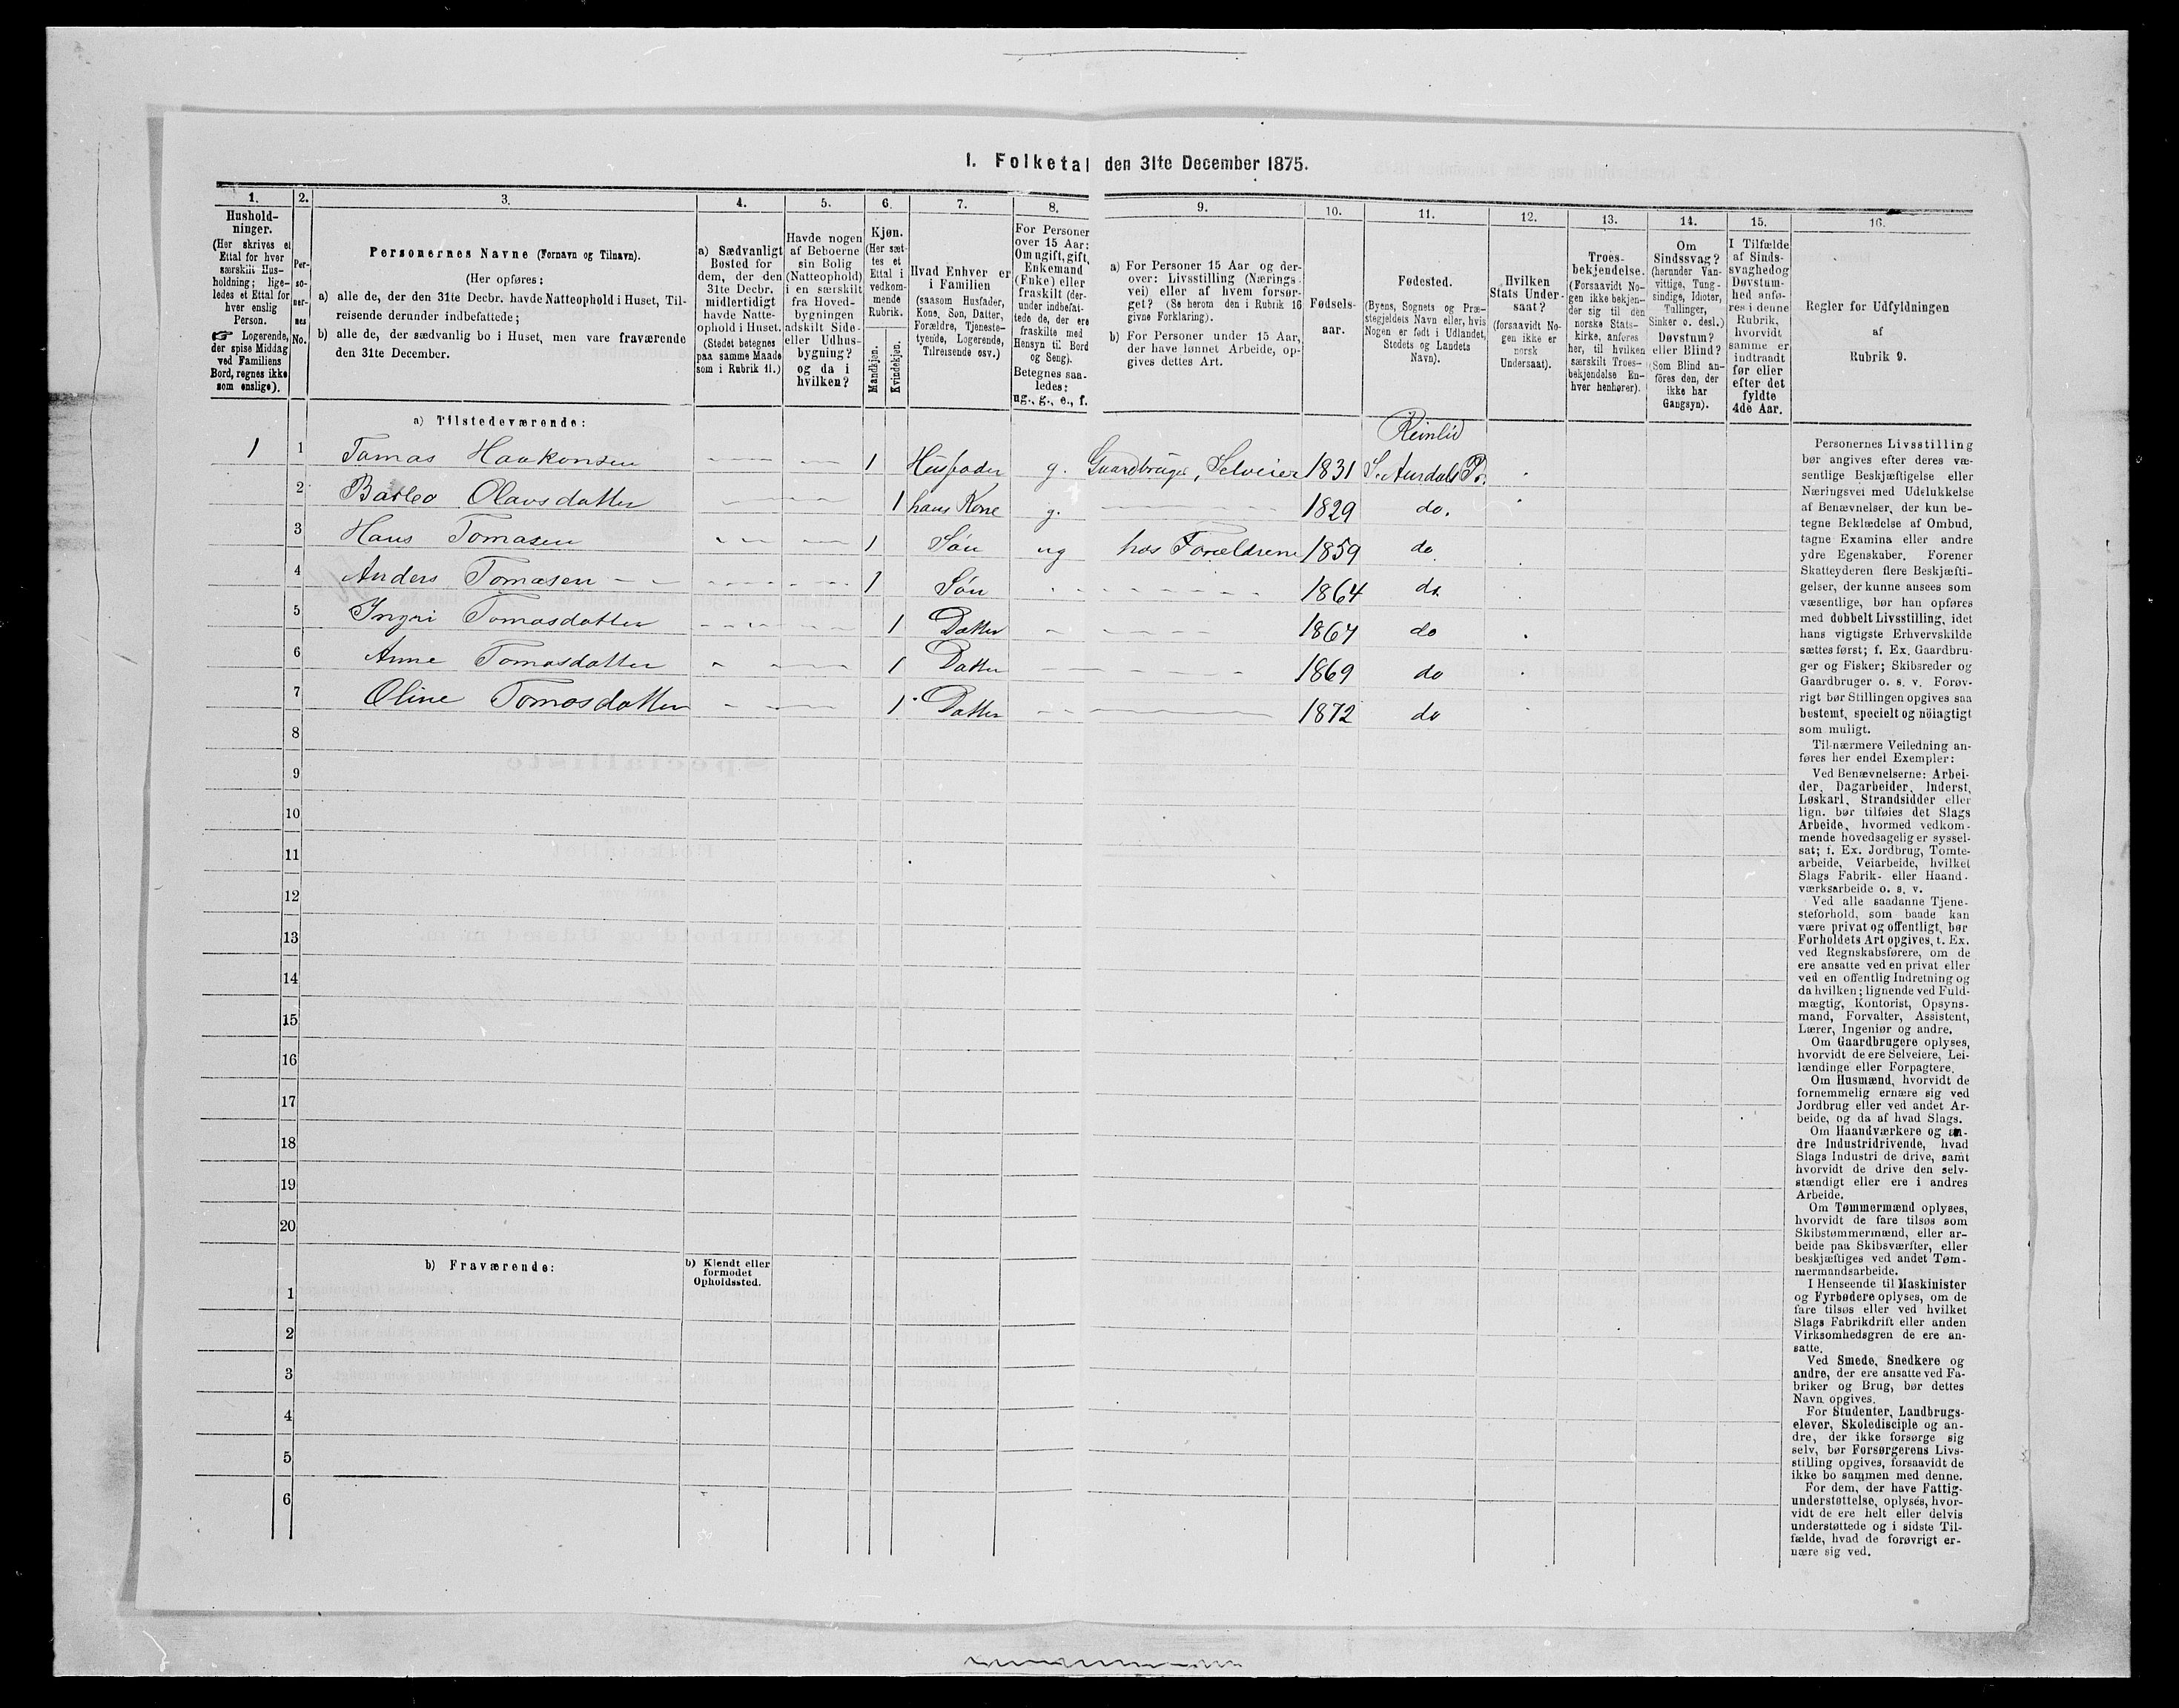 1. Folketal den 31te December 1875.
1. 2. 3. 4. 5. 6. 7. 8. 9. 10. 11. 12. 13. 14. 15. 16.
Hushold-
ninger.
(Her skrives et
Ettal for hver
særskilt Hus-
holdning; lige-
ledes et Ettal for
hver enslig
Person.
☞ Logerende,
der spise Middag
ved Familiens
Bord, regnes ikke
som enslige).
Per-
so-
ner-
nes
No.
Personernes Navne (Fornavn og Tilnavn).
(Her opføres:
a) alle de, der den 31te Decbr. havde Natteophold i Huset, Til-
reisende derunder indbefattede;
b) alle de, der sædvanlig bo i Huset, men vare fraværende
den 31te December.
a) Sædvanligt
Bosted for
dem, der den
31te Decbr.
midlertidigt
havde Natte-
ophold i Huset.
(Stedet betegnes
paa samme Maade
som i Rubrik 11.)
Havde nogen
af Beboerne
sin Bolig
(Natteophold)
i en særskilt
fra Hoved-
bygningen
adskilt Side-
eller Udhus-
bygning?
og da i
hvilken?
Kjøn.
(Her sæt-
tes et
Ettal i
vedkom-
mende
Rubrik.
Mandkjøn.
Kvindekjøn.
Hvad Enhver er
i Familien
(saasom Husfader,
Kone, Søn, Datter,
Forældre, Tjeneste-
tyende, Logerende,
Tilreisende osv.)
For Personer
over 15 Aar:
Om ugift, gift,
Enkemand
(Enke) eller
fraskilt (der-
under indbefat-
tede de, der ere
fraskilte med
Hensyn til Bord
og Seng).
Betegnes saa-
ledes:
ug., g., e., f.
a) For Personer 15 Aar og der-
over: Livsstilling (Nærings-
vei) eller af hvem forsør-
get? (Se herom den i Rubrik 16
givne Forklaring).
b) For Personer under 15 Aar,
der have lønnet Arbeide, op-
gives dettes Art.
Fødsels-
aar.
Fødested.
(Byens, Sognets og Præ-
stegjeldets Navn eller, hvis
Nogen er født i Udlandet,
Stedets og Landets
Navn).
Hvilken
Stats Under-
saat?
(forsaavidt No-
gen ikke er
norsk
Undersaat).
Troes-
bekjendelse.
(Forsaavidt No-
gen ikke bekjen-
der sig til den
norske Stats-
kirke, anføres
her, til hvilken
særskilt Troes-
bekjendelse En-
hver henhører).
Om
Sindssvag?
(herunder Van-
vittige, Tung-
sindige, Idioter,
Tullinger,
Sinker o. desl.)
Døvstum?
eller Blind?
(Som Blind an-
føres den, der
ikke har
Gangsyn).
I Tilfælde
af Sinds-
svaghed og
Døvstum-
hed anfø-
res i denne
Rubrik,
hvorvidt
samme er
indtraadt
før eller
efter det
fyldte
4de Aar.
Regler for Udfyldningen
af
Rubrik 9.
a) Tilstedeværende:
Reinlid
1 1 Tomas Haakonsen 1 Husfader g. Gaardbruger, Selveier 1831 S. Aurdals P.
2 Olavsdatter 1 hans Kone g. 1829 do.
3 Hans Tomasen 1 Søn ug hos Forældrene 1859 do
4 Anders Tomasen 1 Søn 1864 do
5 Ingri Tomasdatter 1 Datter 1867 do
6 Anne Tomasdatter 1 Datter 1869 do
7 Oline Tomasdatter 1 Datter 1872 do
8
9
10
11
12
13
14
15
16
17
18
19
20
b) Fraværende:
b) Kjendt eller
formodet
Opholdssted.
1
2
3
4
5
6
Personernes Livsstilling
bør angives efter deres væ-
sentlige Beskjæftigelse eller
Næringsvei med Udelukkelse
af Benævnelser, der kun be-
tegne Beklædelse af Ombud,
tagne Examina eller andre
ydre Egenskaber. Forener
Skatteyderen flere Beskjæfti-
gelser, der kunne ansees som
væsentlige, bør han opføres
med dobbelt Livsstilling, idet
hans vigtigste Erhvervskilde
sættes først; f. Ex. Gaardbru-
ger og Fisker; Skibsreder og
Gaardbruger o. s. v. Forøv-
rigt bør Stillingen opgives saa
bestemt, specielt og nöiagtigt
som muligt.
Til nærmere Veiledning an-
føres her endel Exempler:
Ved Benævnelserne: Arbei-
der, Dagarbeider, Inderst,
Løskarl, Strandsidder eller
lign. bør tilføies det Slags
Arbeide, hvormed vedkom-
mende hovedsagelig er syssel-
sat; f. Ex. Jordbrug, Tomte-
arbeide, Veiarbeide, hvilket
Slags Fabrik- eller Haand-
værksarbeide o. s. v.
Ved alle saadanne Tjene-
steforhold, som baade kan
være privat og offentligt, bør
Forholdets Art opgives, t. Ex.
ved Regnskabsførere, om de
ere ansatte ved en privat eller
ved en offentlig Indretning og
da hvilken; lignende ved Fuld-
mægtig, Kontorist, Opsyns-
mand, Forvalter, Assistent,
Lærer, Ingeniør og andre.
Om Gaardbrugere oplyses,
hvorvidt de ere Selveiere, Lei-
lændinge eller Forpagtere.
Om Husmænd, hvorvidt de
fornemmelig ernære sig ved
Jordbrug eller ved andet Ar-
beide, og da af hvad Slags.
Om Haandværkere og an-
dre Industridrivende, hvad
Slags Industri de drive, samt
hvorvidt de drive den selv-
stændigt eller ere i andres
Arbeide.
Om Tømmermænd oplyses,
hvorvidt de fare tilsøs som
Skibstømmermænd, eller ar-
beide paa Skibsværfter, eller
beskjæftiges ved andet Tøm-
mermandsarbeide.
I Henseende til Maskinister
og Fyrbødere oplyses, om de
fare tilsøs eller ved hvilket
Slags Fabrikdrift eller anden
Virksomhedsgren de ere an-
satte.
Ved Smede, Snedkere og
andre, der ere ansatte ved Fa-
briker og Brug, bør dettes
Navn opgives.
For Studenter, Landbrugs-
elever, Skoledisciple og an-
dre, der ikke forsørge sig
selv, bør Forsørgerens Livs-
stilling opgives, forsaavidt de
ikke bo sammen med denne.
For dem, der have Fattig-
understøttelse, oplyses, hvor-
vidt de ere helt eller delvis
understøttede og i sidste Til-
fælde, hvad de forøvrigt er-
nære sig ved.